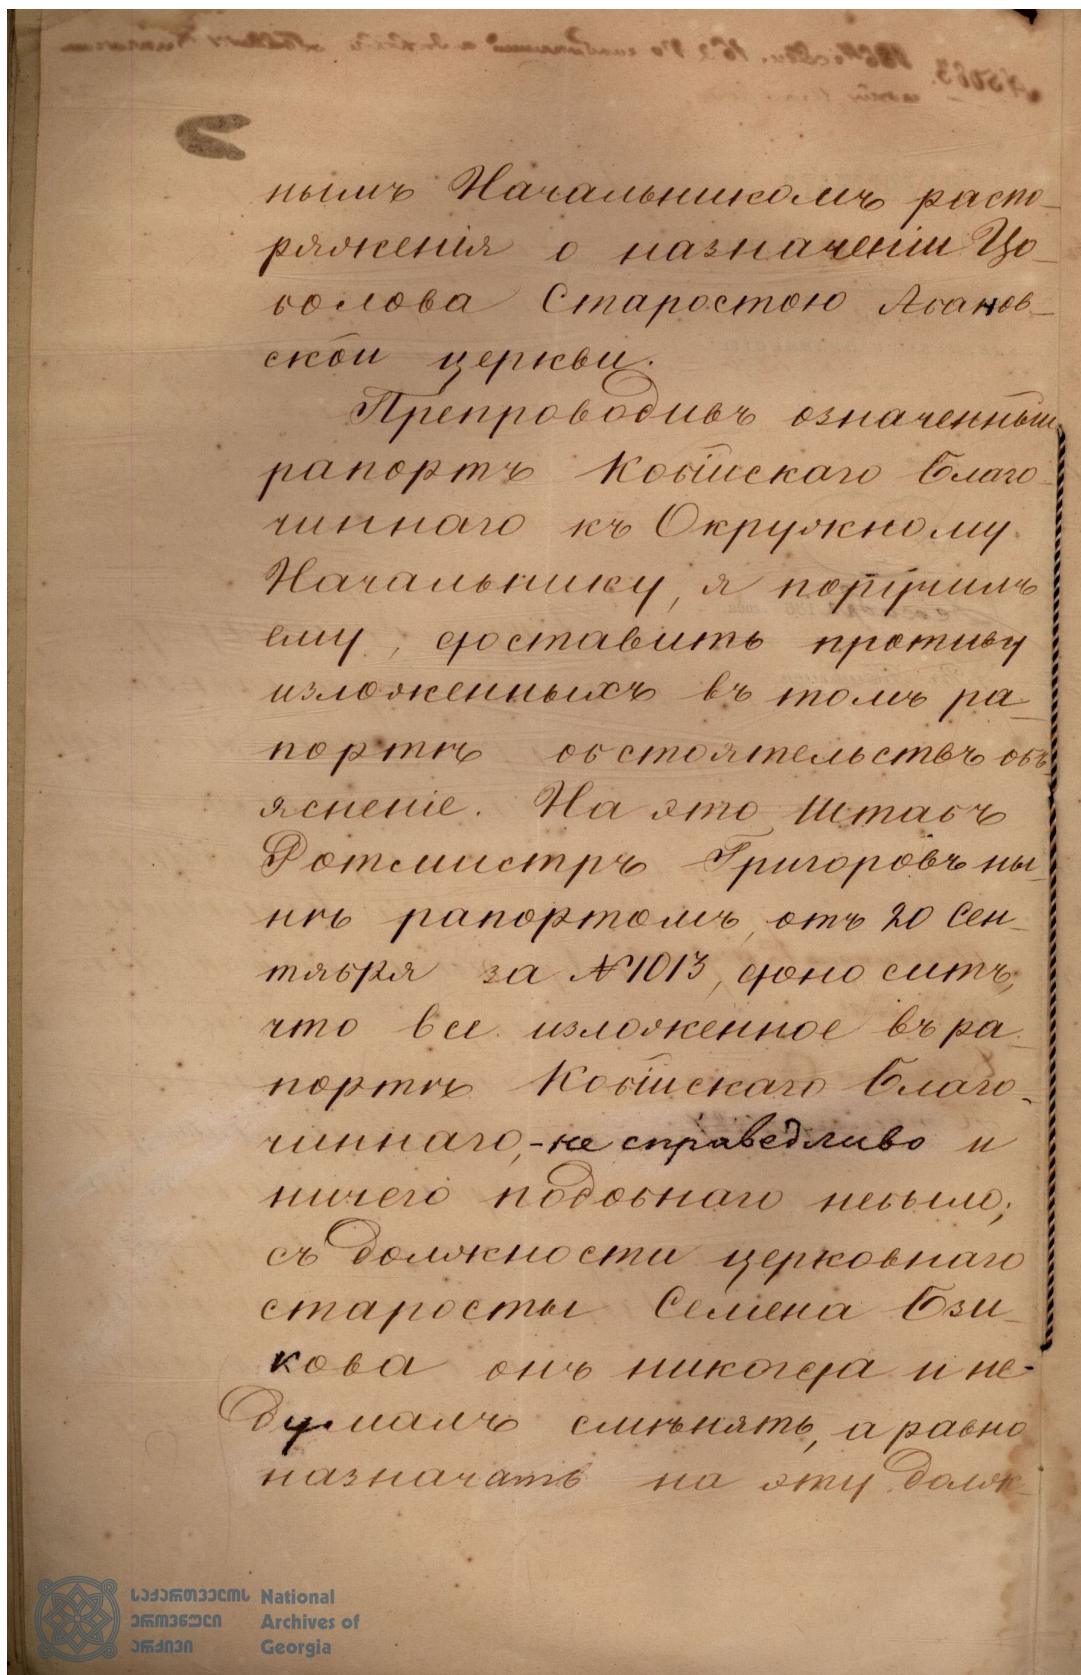 нымъ Начальникомъ распо-
ряженія о назначеніи Цо-
болова Старостою Абанов-
ской церкви.
Препроводивъ означенный
рапортъ Кобійскаго Благо-
чиннаго къ Окружному
Начальнику, я поручилъ
ему, доставить противу
изложенныхъ въ томъ ра-
портѣ обстоятельствъ объ-
ясненіе. На это Штабъ
Ротмистръ Григоровъ ны-
нѣ рапортомъ, отъ 20 Сен-
тября за №1013, доноситъ,
что все изложенное въ ра-
портѣ Кобійскаго Благо-
чиннаго,-не справедливо и
ничего подобнаго небыло;
съ должности церковнаго
старосты Семена Бзи-
кова онъ никогда и не-
думалъ смѣнять, а равно
назначать на эту долж-
საქართველოს
ეროვნული
არქივი
National
Archives of
Georgia